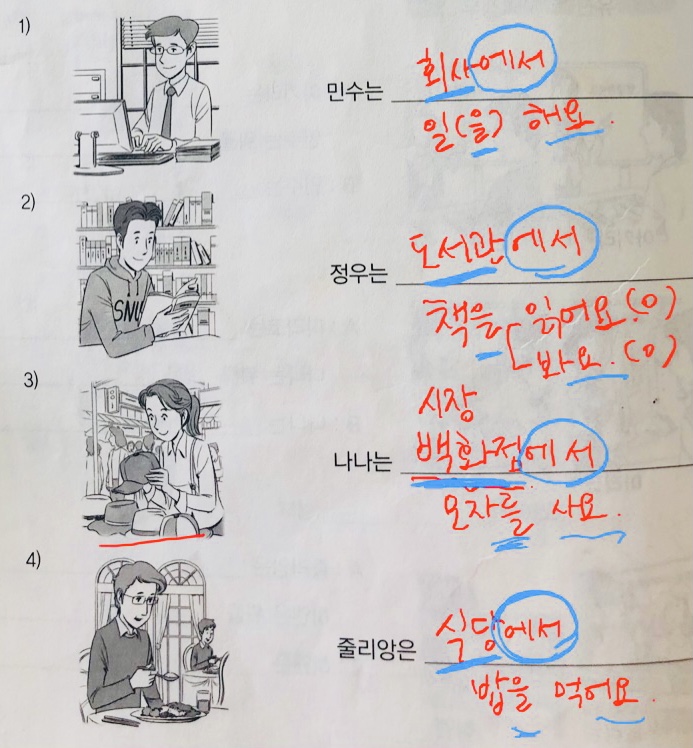 1)
회사에서
민수는
일(을) 해요.
2)
SNU
도서관에서
정우는
책을 읽어요(o)
봐요.(o)
3)
시장
나나는 백화점에서
모자를 사요.
4)
식당에서
줄리앙은
밥을 먹어요.